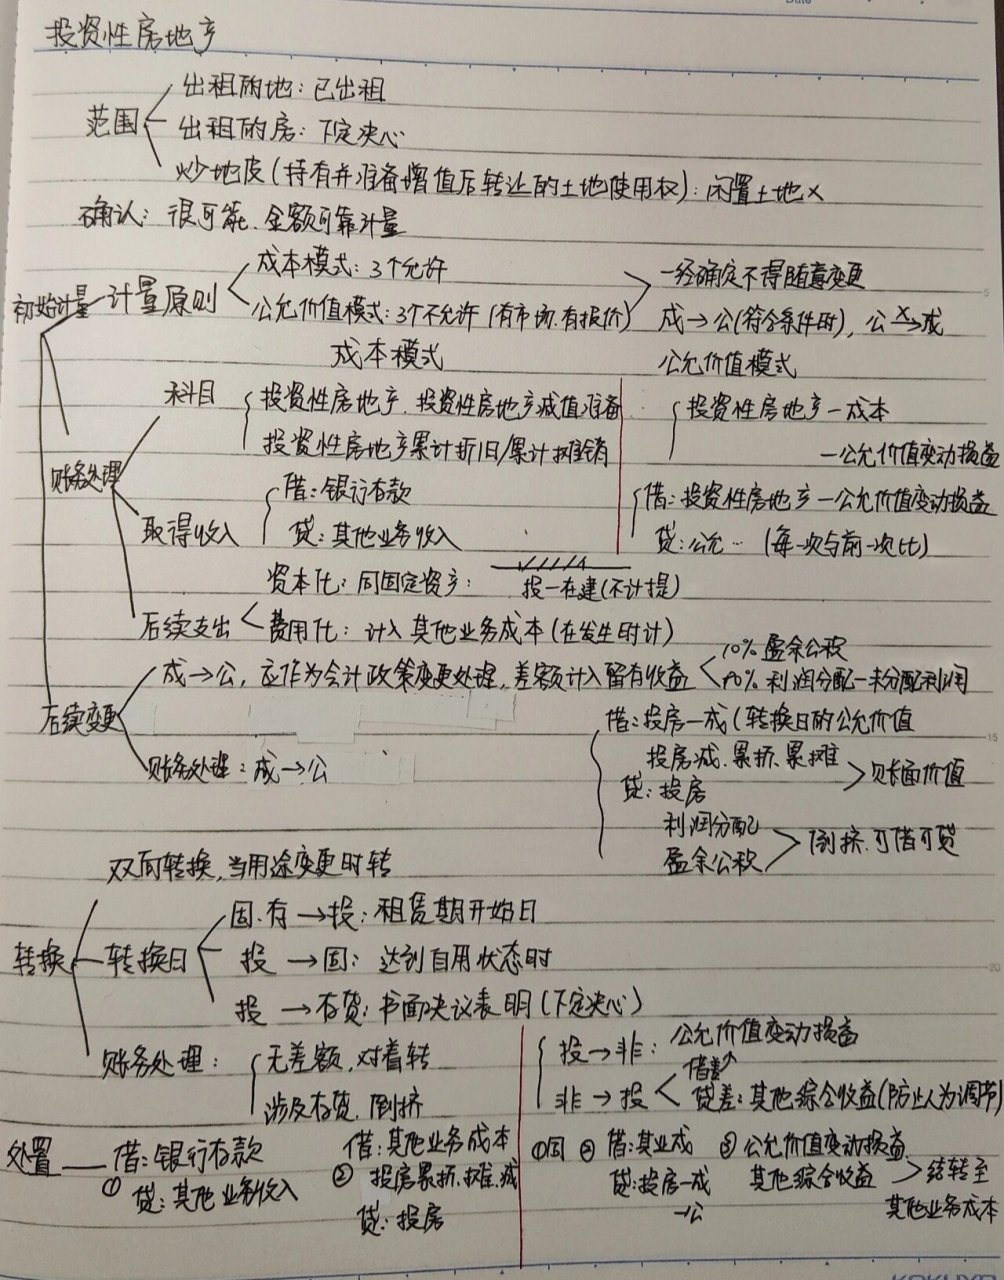 投资性房地产
范围
出租的地：已出租
出租的房：下定决心
炒地皮（持有并准备增值后转让的土地使用权）：闲置土地×
确认：很可能、金额可靠计量
初始计量
计量原则
成本模式：3个允许
公允价值模式：3个不允许（有市场、有报价）
一经确定不得随意变更
成→公（符合条件时），公→成
×
成本模式
公允价值模式
账务处理
科目
投资性房地产、投资性房地产减值准备
投资性房地产累计折旧/累计摊销
投资性房地产—成本
—公允价值变动损益
取得收入
借：银行存款
贷：其他业务收入
借：投资性房地产—公允价值变动损益
贷：公允…（每一次与前一次比）
后续支出
资本化：同固定资产：
投—在建（不计提）
费用化：计入其他业务成本（在发生时计）
后续变更
成→公，应作为会计政策变更处理，差额计入留存收益
10%盈余公积
90%利润分配—未分配利润
账务处理：成→公
借：投房—成（转换日的公允价值
投房减、累折、累摊
贷：投房
账面价值
利润分配
盈余公积
倒挤、可借可贷
转换
双向转换，当用途变更时转
转换日
固、存→投：租赁期开始日
投→固：达到自用状态时
投→存货：书面决议表明（下定决心）
账务处理：
无差额，对着转
涉及存货，倒挤
投→非：公允价值变动损益
非→投
借差↗
贷差：其他综合收益（防止人为调节）
处置
①
借：银行存款
贷：其他业务收入
②
借：其他业务成本
投房累折、摊、减
贷：投房
①同
②借：其业成
贷：投房—成
—公
③公允价值变动损益
其他综合收益
结转至
其他业务成本